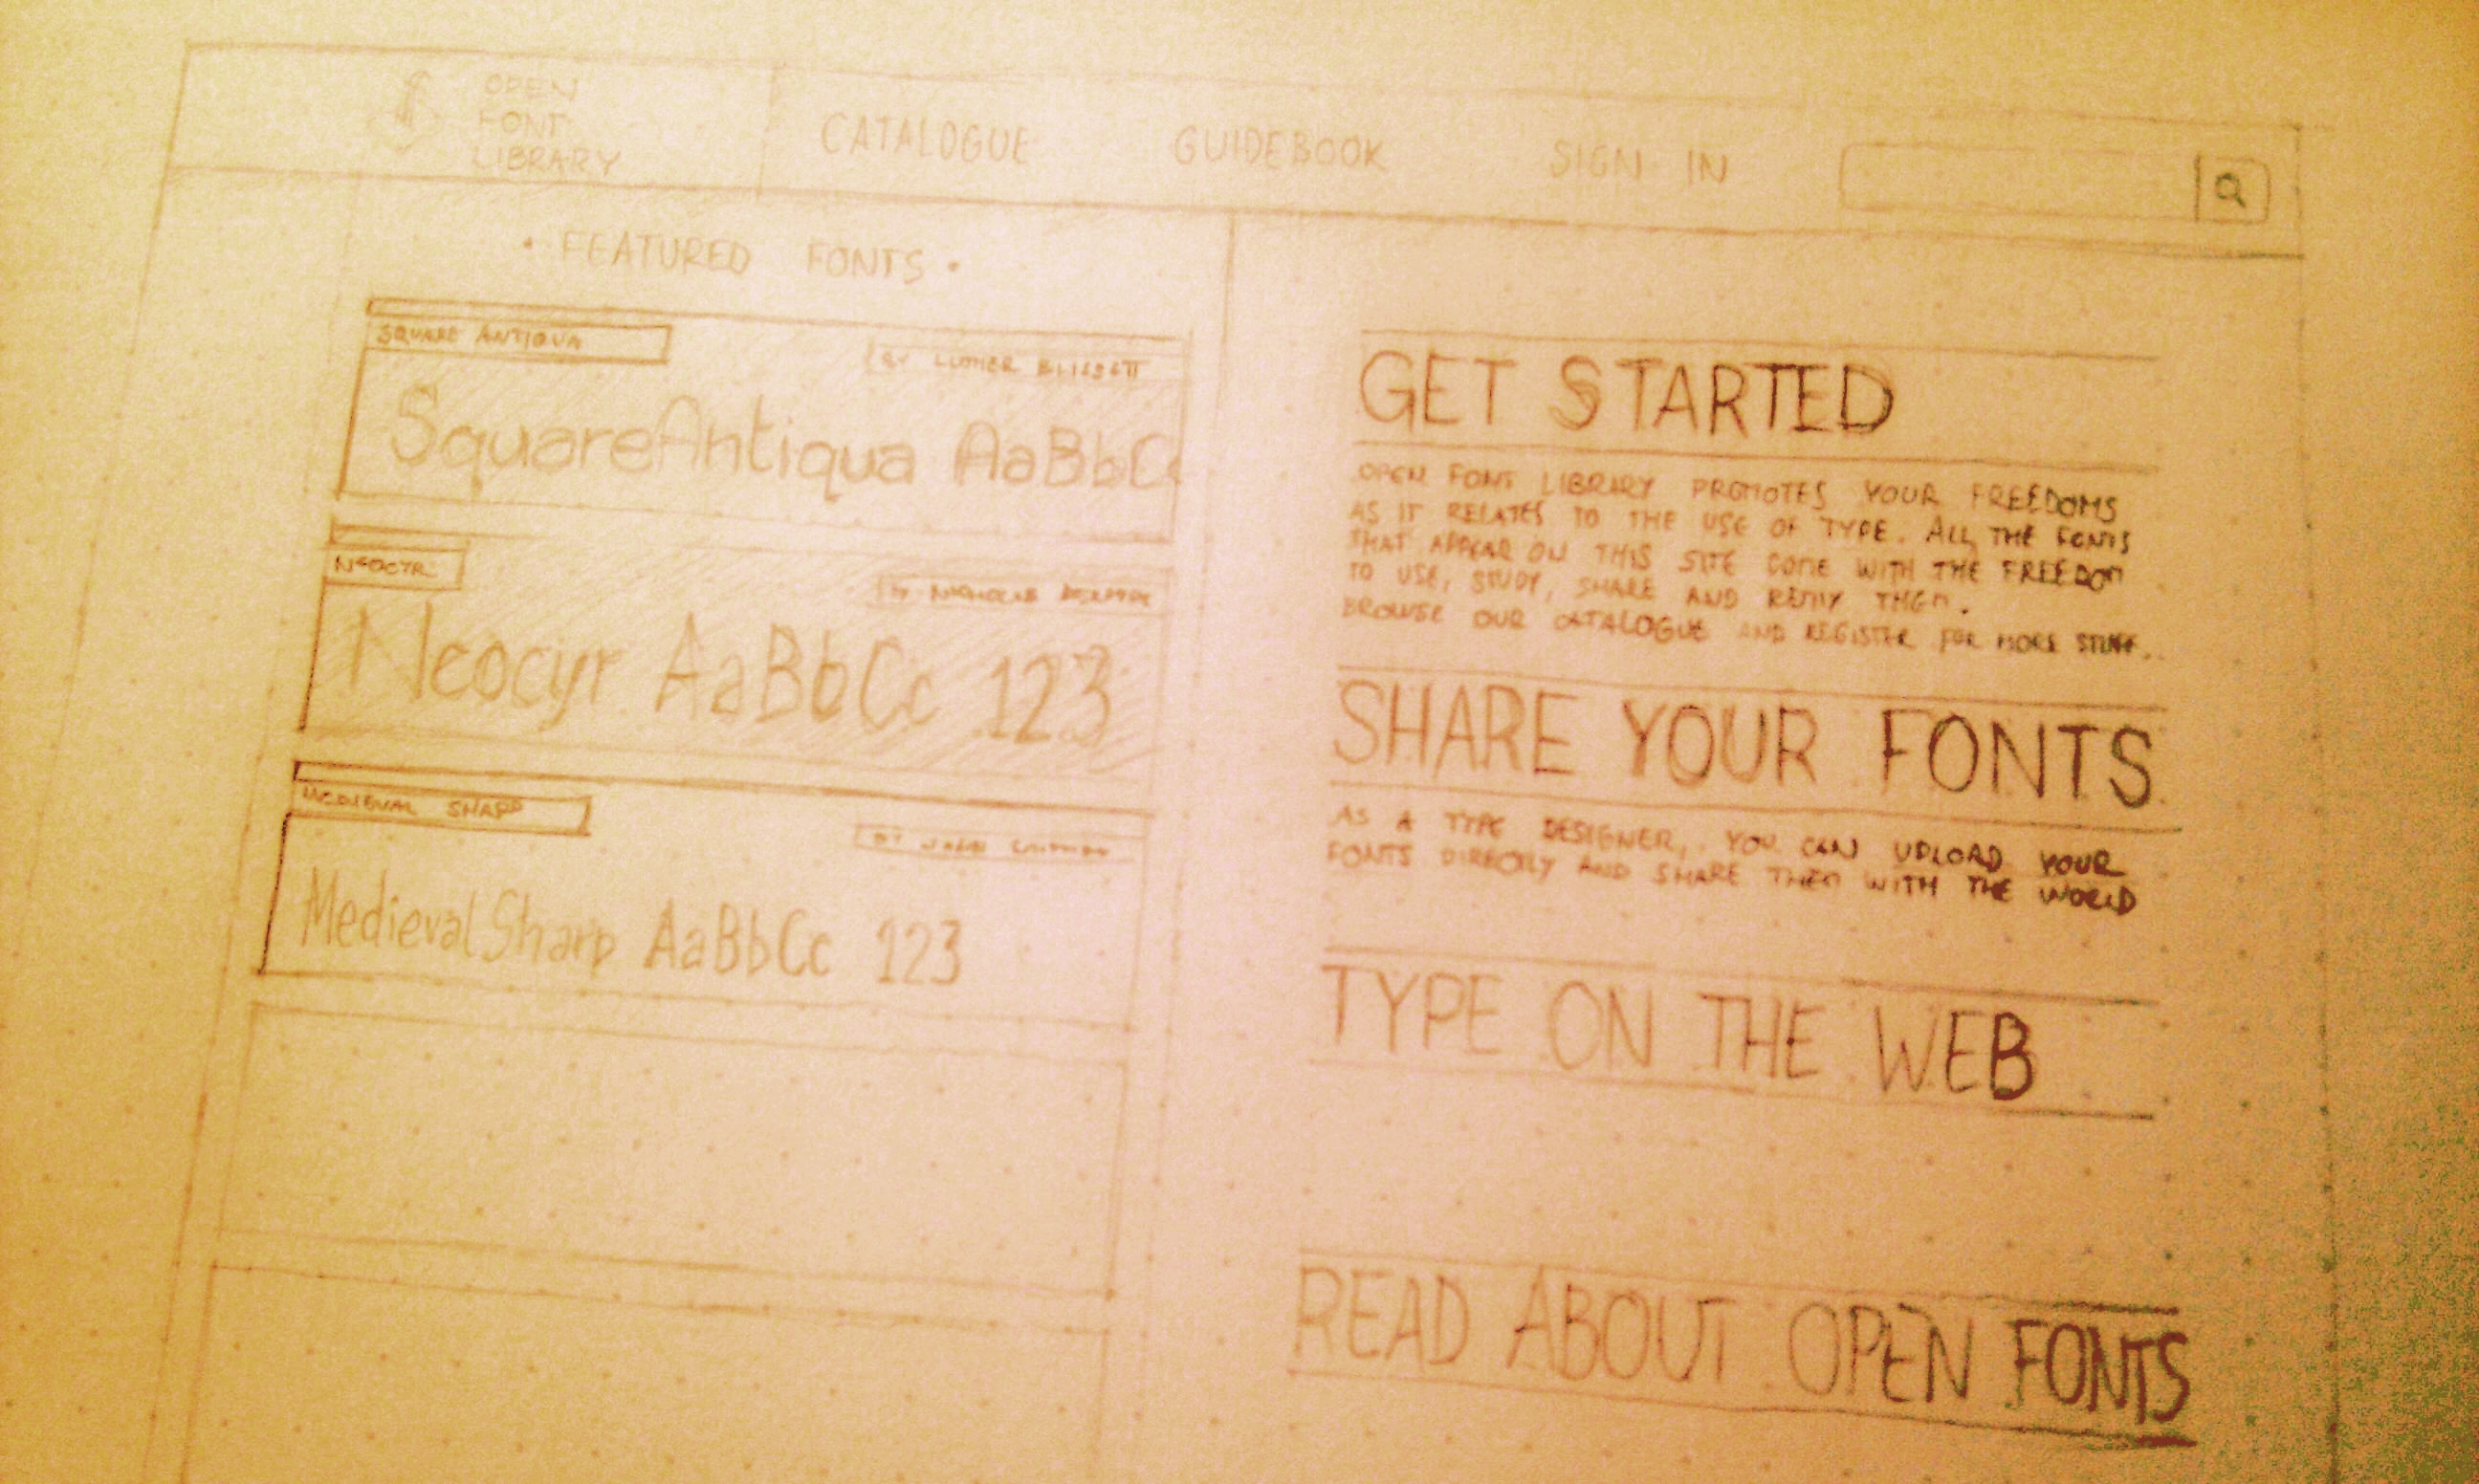 OPEN
FONT
LIBRARY
CATALOGUE
GUIDEBOOK
SIGN IN
• FEATURED FONTS •
SQUARE ANTIQUA
BY LUTHER BLISSETT
SquareAntiqua AaBbCc
NEOCYR
by
Neocyr AaBbCc 123
MEDIEVAL SHARP
BY JOHN
MedievalSharp AaBbCc 123
GET STARTED
OPEN FONT LIBRARY PROMOTES YOUR FREEDOMS
AS IT RELATES TO THE USE OF TYPE. ALL THE FONTS
THAT APPEAR ON THIS SITE COME WITH THE FREEDOM
TO USE, STUDY, SHARE AND REMIX THEM.
BROWSE OUR CATALOGUE AND REGISTER FOR MORE STUFF.
SHARE YOUR FONTS
AS A TYPE DESIGNER, YOU CAN UPLOAD YOUR
FONTS DIRECTLY AND SHARE THEM WITH THE WORLD
TYPE ON THE WEB
READ ABOUT OPEN FONTS